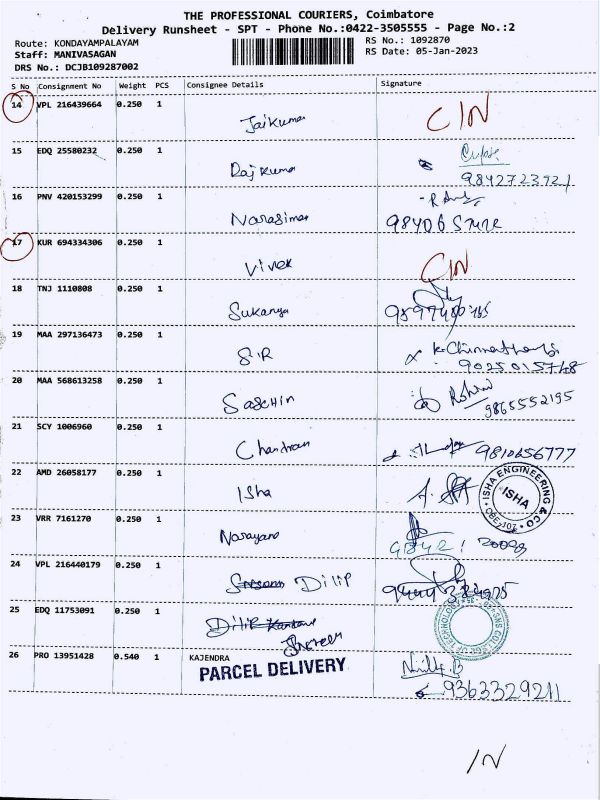 THE PROFESSIONAL COURIERS, Coimbatore
Delivery Runsheet - SPT - Phone No.:0422-3505555 - Page No.:2
Route: KONDAYAMPALAYAM
RS No.: 1092870
Staff: MANIVASAGAN
RS Date: 05-Jan-2023
DRS No.: DCJB109287002
S No Consignment No Weight PCS Consignee Details Signature
14 VPL 216439664 0.250 1 Jaikumar CIN
15 EDQ 25580232 0.250 1 Raj kumar
9842723921
16 PNV 420153299 0.250 1 Narasiman
17 KUR 694334306 0.250 1 Vivek CIN
18 TNJ 1110808 0.250 1 Sukanya
19 MAA 297136473 0.250 1 SIR
9025015748
20 MAA 568613258 0.250 1 Saschin
9865552195
21 SCY 1006960 0.250 1 Chandran 9810656777
22 AMD 26058177 0.250 1 Isha
ISHA ENGINEERING & CO
ISHA
23 VRR 7161270 0.250 1 Narayana
24 VPL 216440179 0.250 1 DILIP
25 EDQ 11753091 0.250 1
SNS COLLEGE OF TECHNOLOGY
26 PRO 13951428 0.540 1 KAJENDRA
PARCEL DELIVERY
9363329211
IN